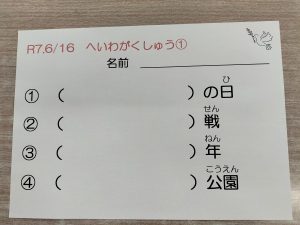 R7.6/16 へいわがくしゅう①
名前
① (　　　　　　) の日
ひ
② (　　　　　　) 戦
せん
③ (　　　　　　) 年
ねん
④ (　　　　　　) 公園
こうえん